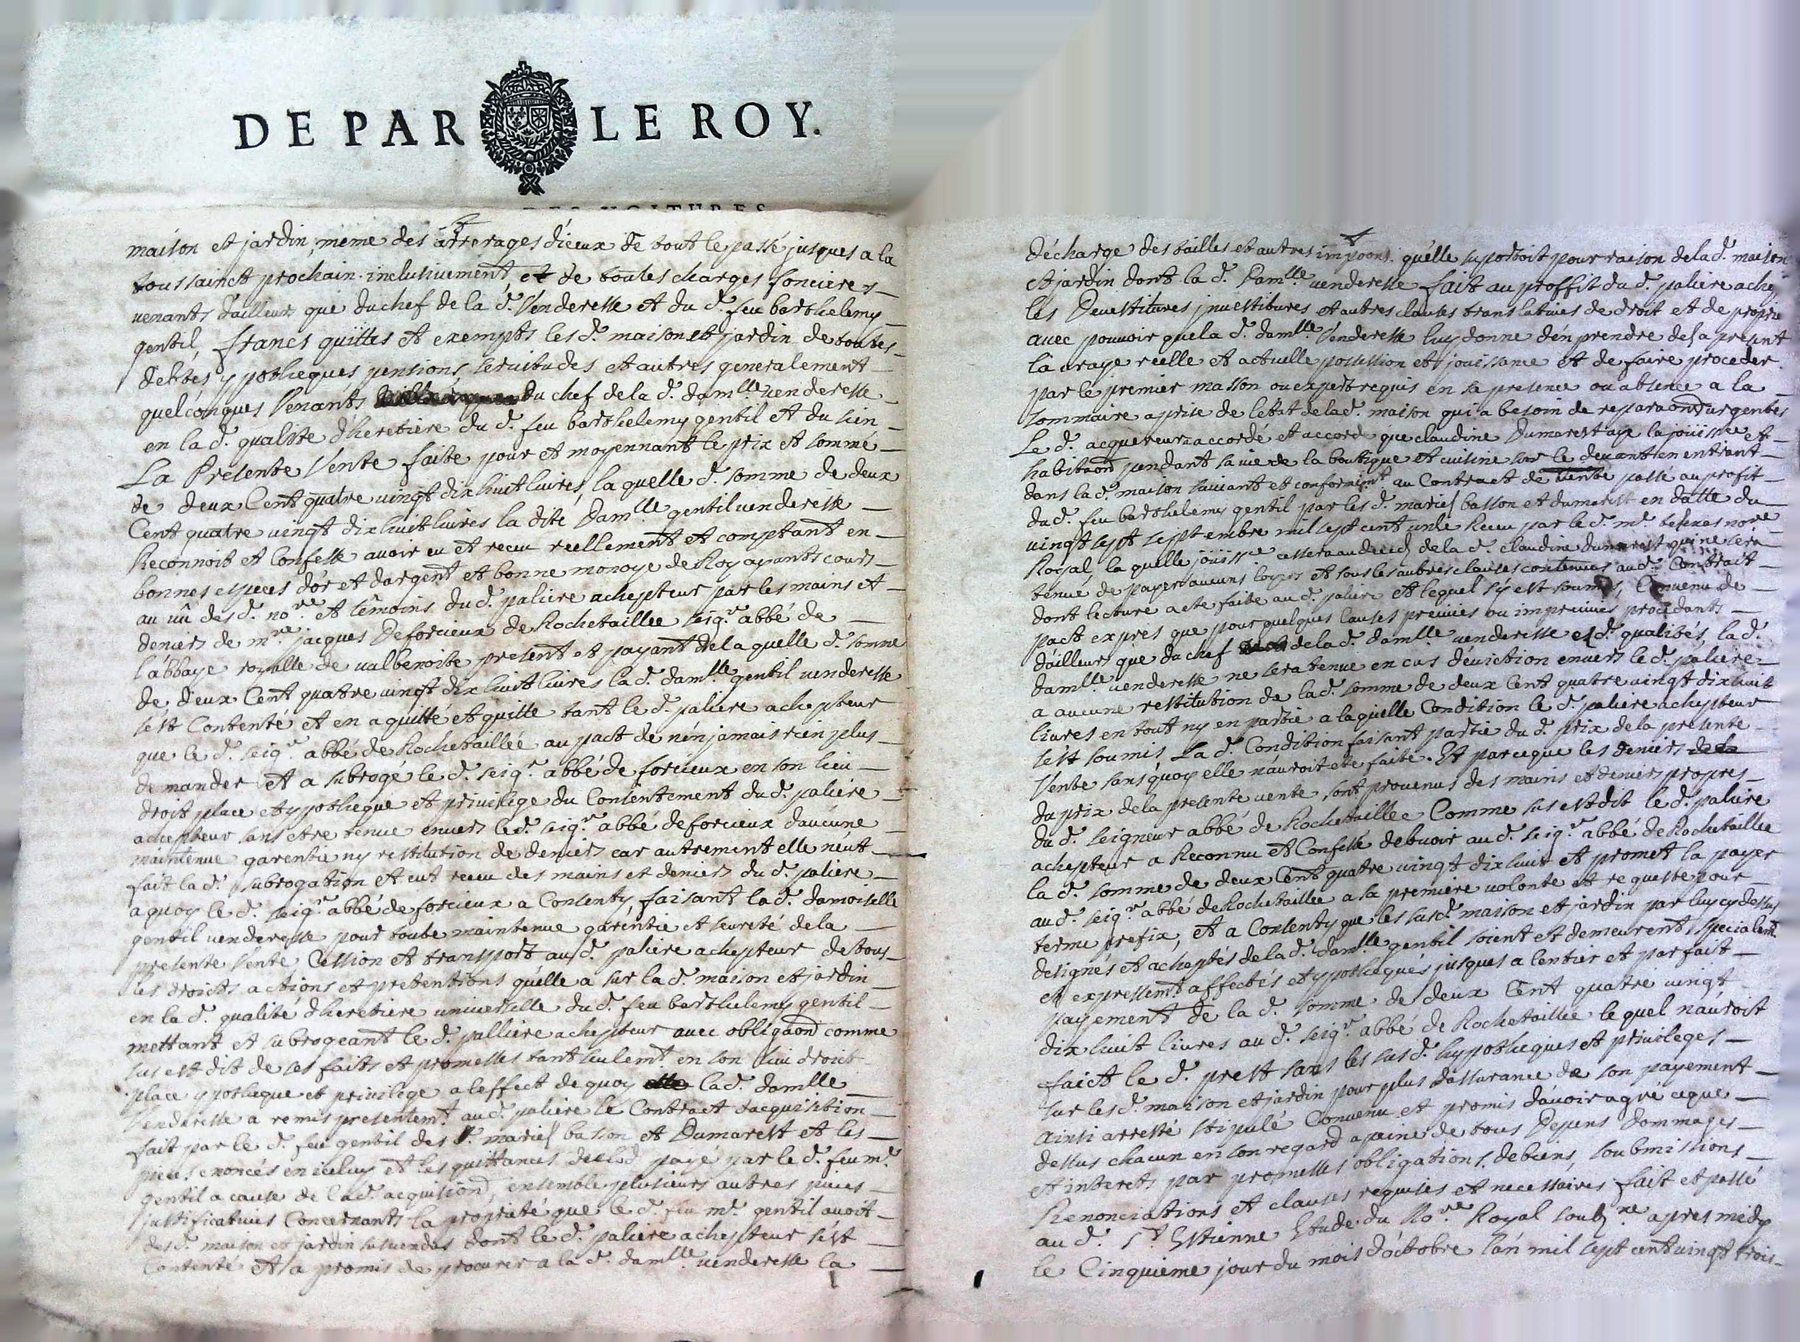 DE PAR LE ROY.
DES VOITURES
maison et jardin, meme des arrerages d'ieux de tout le passé jusques a la
toussainct prochain inclusivement, et de toutes charges foncieres
venants d'ailleurs que du chef de la d.e Venderesse et du d. feu barthelemy
gentil, francs quittes et exempts les d. maison et jardin de toutes
debtes ypotheques pensions, servitudes et autres generalement
quelconques Venants du chef de la d.e dam.lle venderesse
en la d. qualité d'heretiere du d. feu barthelemy gentil et du sien
La Presente Vente faite pour et moyennant le prix et somme
de deux Cent quatre vingt dix huit livres, la quelle d. somme de deux
Cent quatre vingt dix huit livres la dite Dam.lle gentil venderesse
Reconnoit et Confesse avoir eu et recu reellement et comptant en
bonnes especes d'or et d'argent et bonne monoye de Roy ayants cours
au vû des d. no.re et têmoins du d. paliere achepteur par les mains et
deniers de m.re jacques Deforcieux de Rochetaillee seig.r abbé de
l'abbaye royalle de valbenoite present et payant de la quelle d. somme
de deux Cent quatre vingt dix huit livres la d. dam.lle gentil venderesse
s'est Contenté et en a quitté et quitte tant le d. paliere achepteur
que le d. seig.r abbé de Rochetaillée au pact de n'en jamais rien plus
demander et a subrogé le d. seig.r abbé de forcieux en son lieu
droit place et ypotheque et privilege du Consentement du d. paliere
achepteur sans etre tenue envers le d. seig.r abbé de forcieux d'aucune
maintenue garentie ny restitution de deniers car autrement elle n'eut
fait la d. subrogation et eut recu des mains et deniers du d. paliere
a quoy le d. seig.r abbé de forcieux a Consenty, faisant la d. damoiselle
gentil venderesse pour toute maintenue garentie et seureté de la
presente Vente Cession et transport au d. paliere achepteur de tous
les droits actions et pretentions qu'elle a sur la d. maison et jardin
en la d. qualité d'heretiere universelle du d. feu barthelemy gentil
mettant et subrogeant le d. palliere achepteur avec obliga͠on comme
sus est dit de ses faits et promesses tant seulem.t en son lieu droit
place ypotheque et privilege a l'effect de quoy la d. dam.lle
Venderesse a remis presentem.t au d. paliere le Contract d'acquisition
fait par le d. feu gentil des d. mariés basson et Dumarest et les
pieces enoncés en iceluy et les quittances de lod payé par le d. feu m.r
gentil a cause de la d. acquision, ensemble plusieurs autres pieces
justificatives Concernants la proprieté que le d. feu m.r gentil avoit
des d. maison et jardin susvendus dont le d. paliere achepteur s'est
Contenté et a promis de procurer a la d. dam.lle venderesse la
décharge des tailles et autres impo͠ons. qu'elle suportoit pour raison de la d. maison
et jardin dont la d. Dam.lle venderesse fait au proffit du d. paliere ache
les Devestitures jnvestitures et autres clauses translatives de droit et de proprie
avec pouvoir que la d. dam.lle Venderesse luy donne d'en prendre des a present
la vraye réelle et actuelle possession et jouissance et de faire proceder
par le premier masson ou expert requis en sa presence ou absence a la
sommaire aprise de l'etat de la d. maison qui a besoin de repara͠ons urgentes
Le d. acquereur a accordé et accorde que claudine Dumarest aye la jouiss.ce et
habita͠on pendant sa vie de la boutique et cuisine sur le devant en entrant
dans la d. maison suivant et conformem.t au Contract de vente passé au profit
du d. feu barthelemy gentil par les d. mariés basson et dumarest en datte du
vingt sept septembre mil sept cent unze Receu par le d. m.e no.re
Royal la quelle jouiss.ce cessera au deceds de la d. claudine dumarest qui ne sera
tenue de payer aucuns loyers et sous les autres clauses contenues au d. Contract
dont lecture a ete faite au d. paliere et lequel s'y est soumis, Convenu de
pact expres que pour quelques causes preveues ou impreveues procedants
d'ailleurs que du chef de la d. damlle venderesse es d. qualités, la d.
damlle. venderesse ne sera tenue en cas d'eviction envers le d. paliere
a aucune restitution de la d. somme de deux Cent quatre vingt dix huit
livres en tout ny en partie a laquelle Condition le d. paliere achepteur
s'est soumis. La d. Condition faisant partie du d. prix de la presente
Vente sans quoy elle n'auroit ete faite. Et parceque les deniers de la
du prix de la presente vente sont provenus des mains et deniers propres
du d. seigneur abbé de Rochetaillee Comme sus est dit le d. paliere
achepteur a Reconnu et Confesse debvoir au d. seig.r abbé de Rochetaillee
la d. somme de deux Cent quatre vingt dix huit et promet la payer
au d. seig.r abbé de Rochetaillee a sa premiere volonte et requeste pour
terme prefix, et a Consenty que les sus d. maison et jardin par luy cy dessus
designés et acheptés de la d. damlle. gentil soient et demeurent, specialem.t
et expressem.t affectés et ypothequés jusques a l'entier et parfait
payement de la d. somme de deux Cent quatre vingt
dix huit livres au d. seig.r abbé de Rochetaillee le quel n'auroit
faict le d. prest sans les sus d. hypotheques et privileges
sur les d. maison et jardin pour plus d'assurance de son payement
Ainsi arresté stipulé Convenu et promis d'avoir agré ceque
dessus chacun en son regard a peine de tous Depens Dommages
et interets, par promesses obligations, de biens, soubmissions
Renonciations et clauses requises et necessaires, fait et passé
au d. S.t Estienne Etude du No.re Royal soub.ne apres midy
le Cinquieme jour du mois d'octobre l'an mil sept cent vingt trois